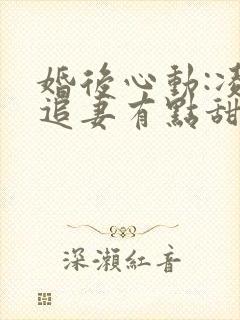 婚後心動:凌
追妻有點甜
深瀨紅音